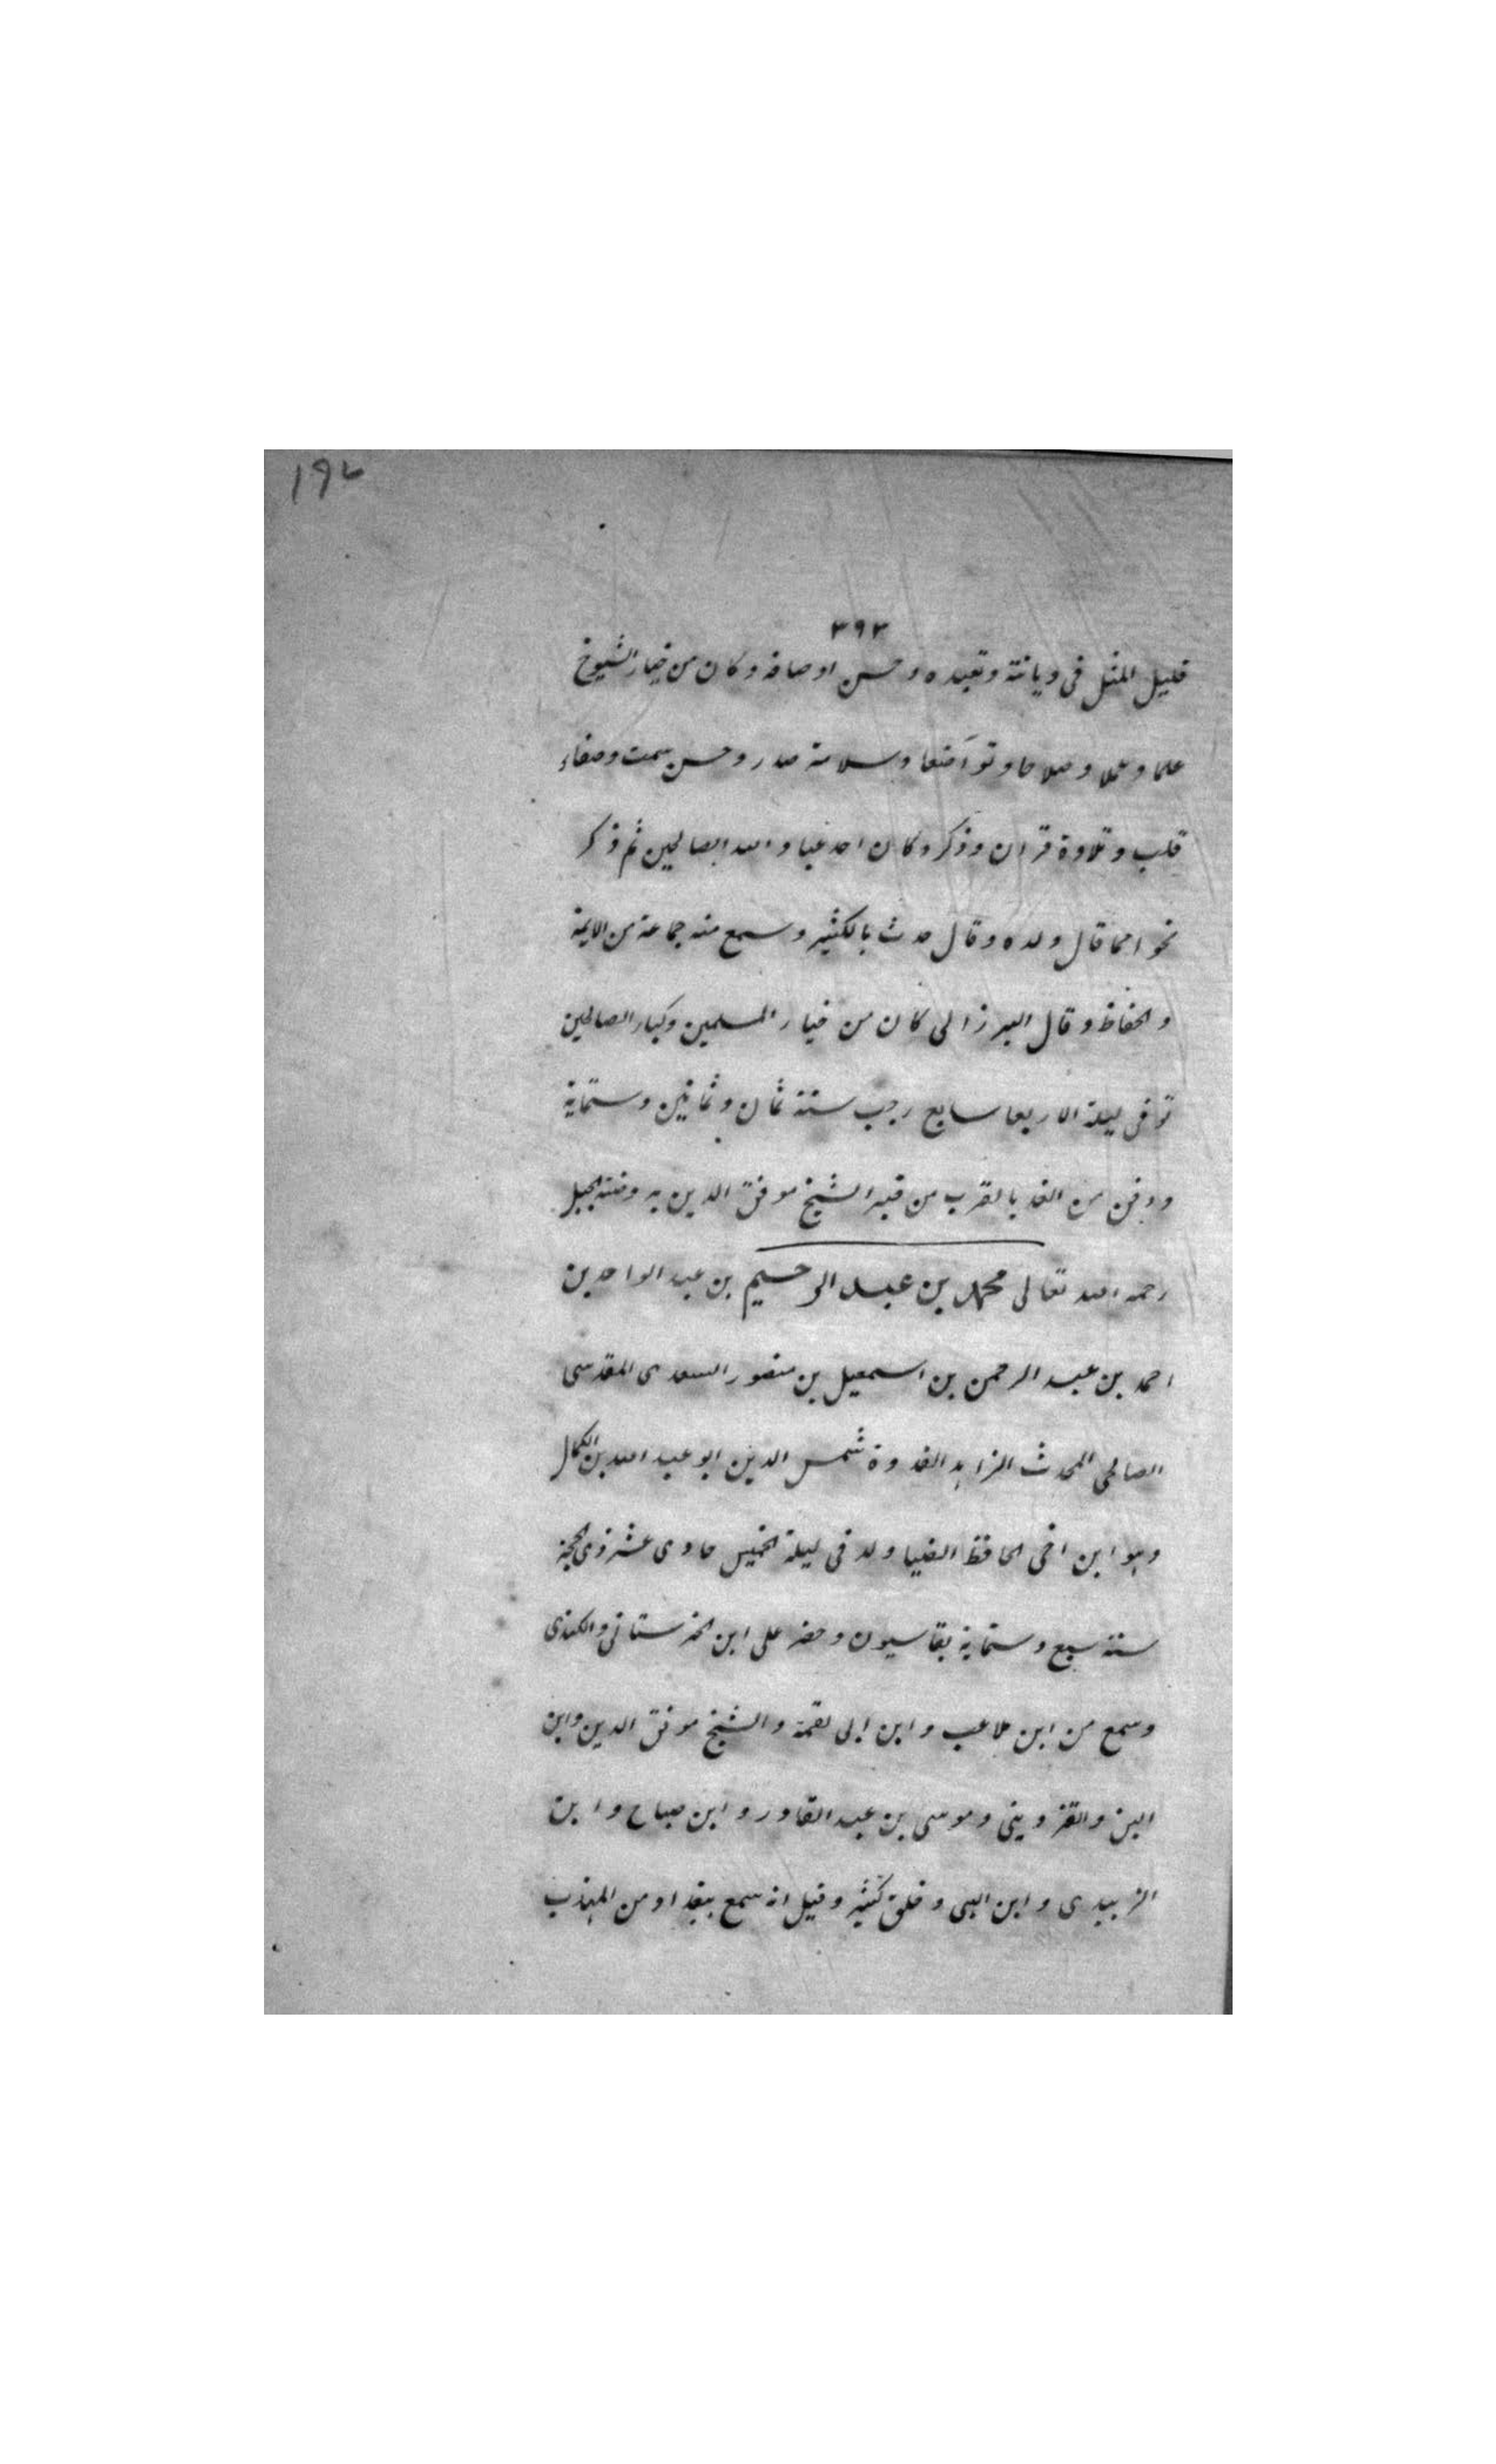 ١٩٧
٣٩٣
قليل المثل فى ديانته وتعبده وحسن اوصافه وكان من خيار الشيوخ
علما وعملا وصلاحا وتواضعا وسلامة صدر وحسن سمت وصفاء
قلب وتلاوة قران وذكر وكان احد عباد الله الصالحين ثم ذكر
نحوا مما قال ولده وقال حدث بالكثير وسمع منه جماعة من الايمة
والحفاظ وقال البرزالى كان من خيار المسلمين وكبار الصالحين
توفى ليلة الاربعا سابع رجب سنة ثمان وثمانين وستماية
ودفن من الغد بالقرب من قبر الشيخ موفق الدين به وضته بالجبل
رحمه الله تعالى محمد بن عبد الرحيم بن عبد الواحد بن
احمد بن عبد الرحمن بن اسمعيل بن منصور السعدى المقدسى
الصالحى المحدث الزاهد القدوة شمس الدين ابو عبد الله بن الكمال
وهو ابن اخى الحافظ الضيا ولد فى ليلة الخميس حادى عشر ذى الحجة
سنة سبع وستماية بقاسيون وحضر على ابن الحرستانى والكندى
وسمع من ابن ملاعب وابن ابى لقمة والشيخ موفق الدين وابن
البن والقزوينى وموسى بن عبد القادر وابن صباح وابن
الزبيدى وابن اللتى وخلق كثير وقيل انه سمع ببغداد من المهذب